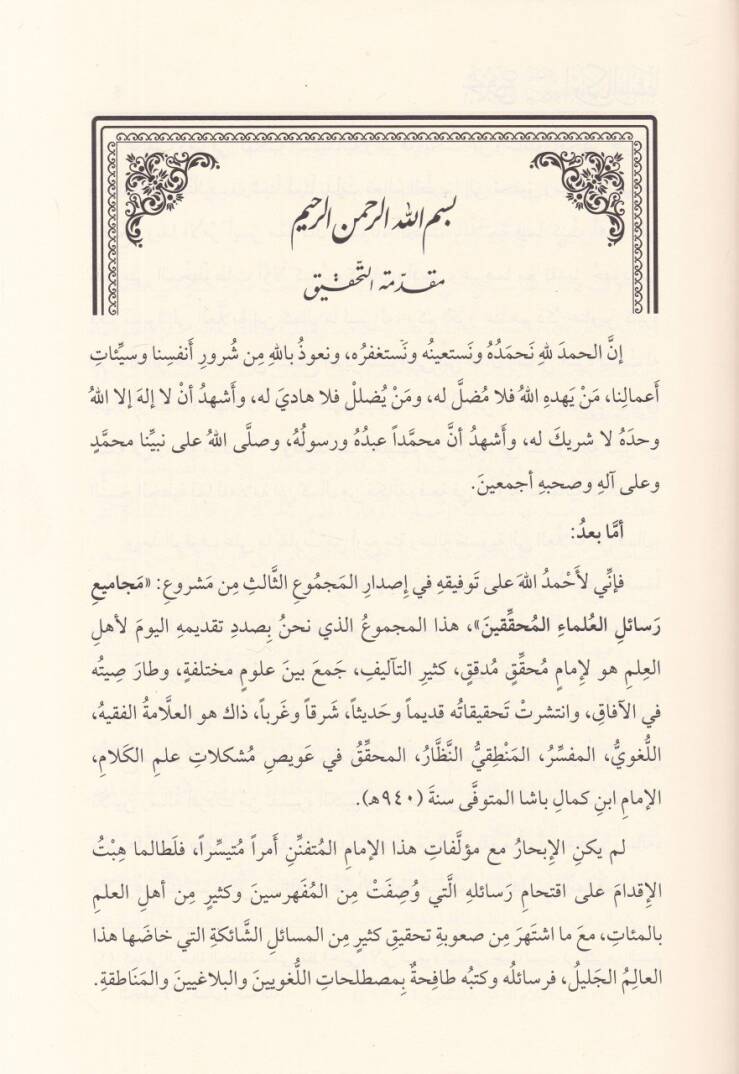 بسم الله الرحمن الرحيم
مقدّمة التّحقيق
إنَّ الحمدَ للهِ نَحمَدُهُ ونَستعينُه ونَستغفرُه، ونعوذُ باللهِ مِن شُرورِ أنفسِنا وسيِّئاتِ
أعمالِنا، مَنْ يَهدهِ اللهُ فلا مُضلَّ له، ومَنْ يُضللْ فلا هاديَ له، وأَشهدُ أنْ لا إلهَ إلا اللهُ
وحدَهُ لا شريكَ له، وأَشهدُ أنَّ محمَّداً عبدُهُ ورسولُهُ، وصلَّى اللهُ على نبيِّنا محمَّدٍ
وعلى آلهِ وصحبهِ أجمعينَ.
أمَّا بعدُ:
فإنِّي لأَحْمدُ اللهَ على تَوفيقهِ في إصدارِ المَجمُوعِ الثَّالثِ مِن مَشروعِ: «مَجاميعِ
رَسائلِ العُلماءِ المُحقِّقينَ»، هذا المجموعُ الذي نحنُ بِصددِ تقديمهِ اليومَ لأهلِ
العِلمِ هو لإمامٍ مُحقِّقٍ مُدققٍ، كثيرِ التآليفِ، جَمعَ بينَ علومٍ مختلفةٍ، وطارَ صِيتُه
في الآفاقِ، وانتشرتْ تَحقيقاتُه قديماً وحَديثاً، شَرقاً وغَرباً، ذاك هو العلَّامةُ الفقيهُ،
اللُّغويُّ، المفسِّرُ، المَنْطِقيُّ النَّظَّارُ، المحقِّقُ في عَويصِ مُشكلاتِ علمِ الكَلامِ،
الإمام ابنِ كمال باشا المتوفَّى سنةَ (٩٤٠هـ).
لم يكنِ الإبحارُ مع مؤلَّفاتِ هذا الإمامِ المُتفنِّنِ أمراً مُتيسِّراً، فلَطالما هِبْتُ
الإقدامَ على اقتحامِ رَسائلهِ الَّتي وُصِفَتْ مِن المُفَهرسينَ وكثيرٍ مِن أهلِ العلمِ
بالمئاتِ، معَ ما اشتَهرَ مِن صعوبةِ تحقيقِ كثيرٍ مِن المسائلِ الشَّائكةِ التي خاضَها هذا
العالِمُ الجَليلُ، فرسائلُه وكتبُه طافِحةٌ بِمصطلحاتِ اللُّغويينَ والبلاغيينَ والمَنَاطقةِ.